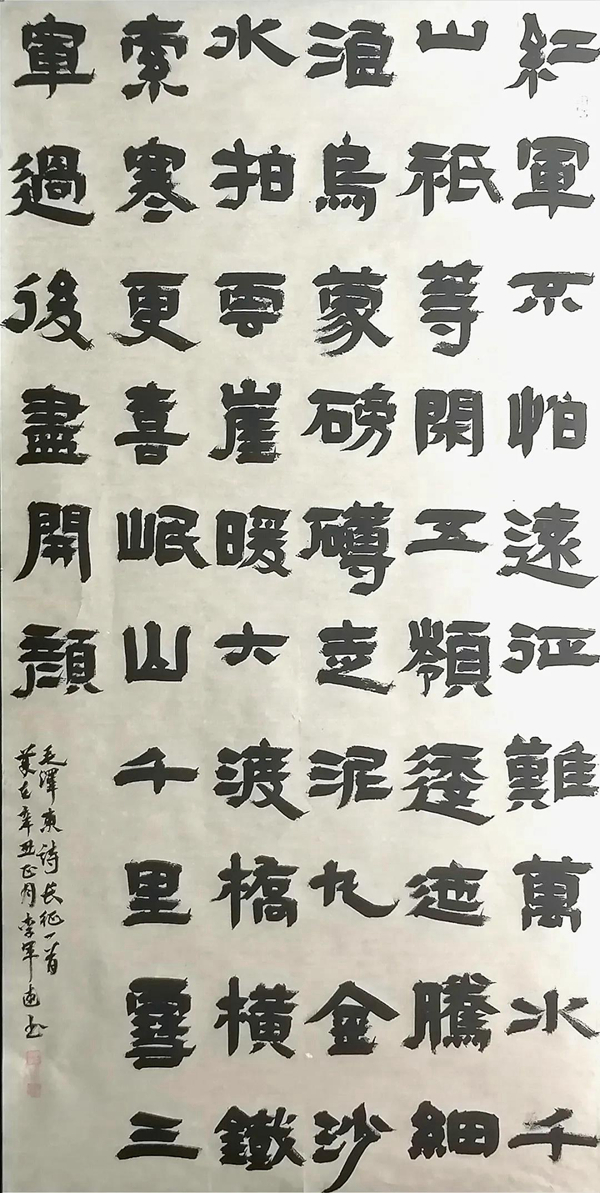 紅軍不怕遠征難萬水千
山祇等閑五嶺逶迤騰細
浪烏蒙磅礴走泥丸金沙
水拍雲崖暖大渡橋橫鐵
索寒更喜岷山千里雪三
軍過後盡開顏
毛澤東詩長征一首
辛丑正月李軍